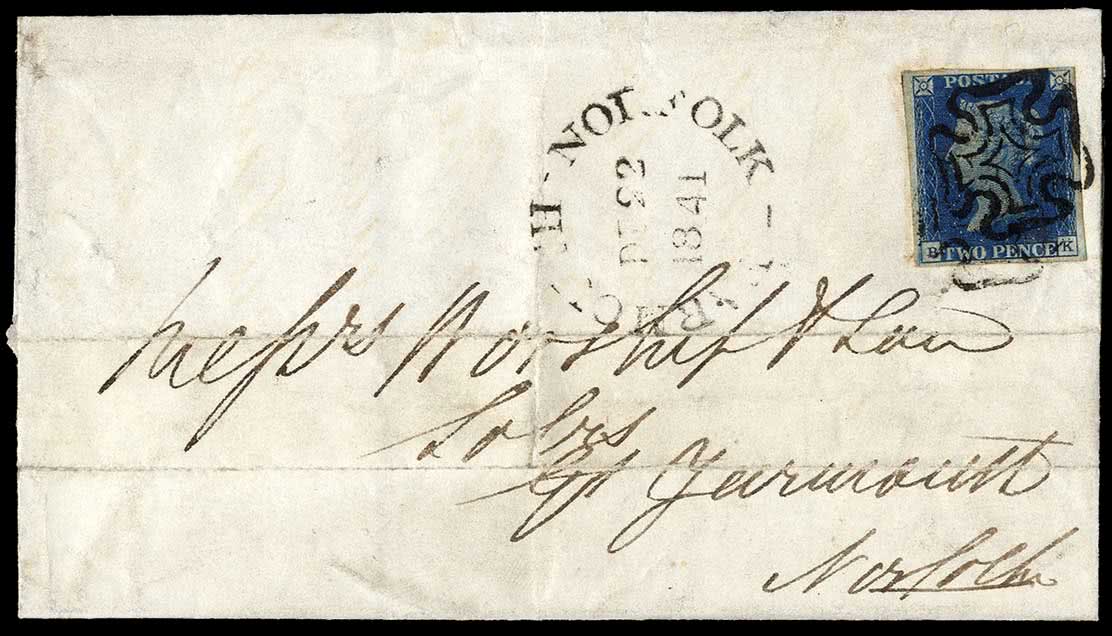 POSTAGE
TWO PENCE
B K
YARMOUTH-NORFOLK
22
1841
Messrs Worship & Son
Solrs
Gt Yarmouth
Norfolk